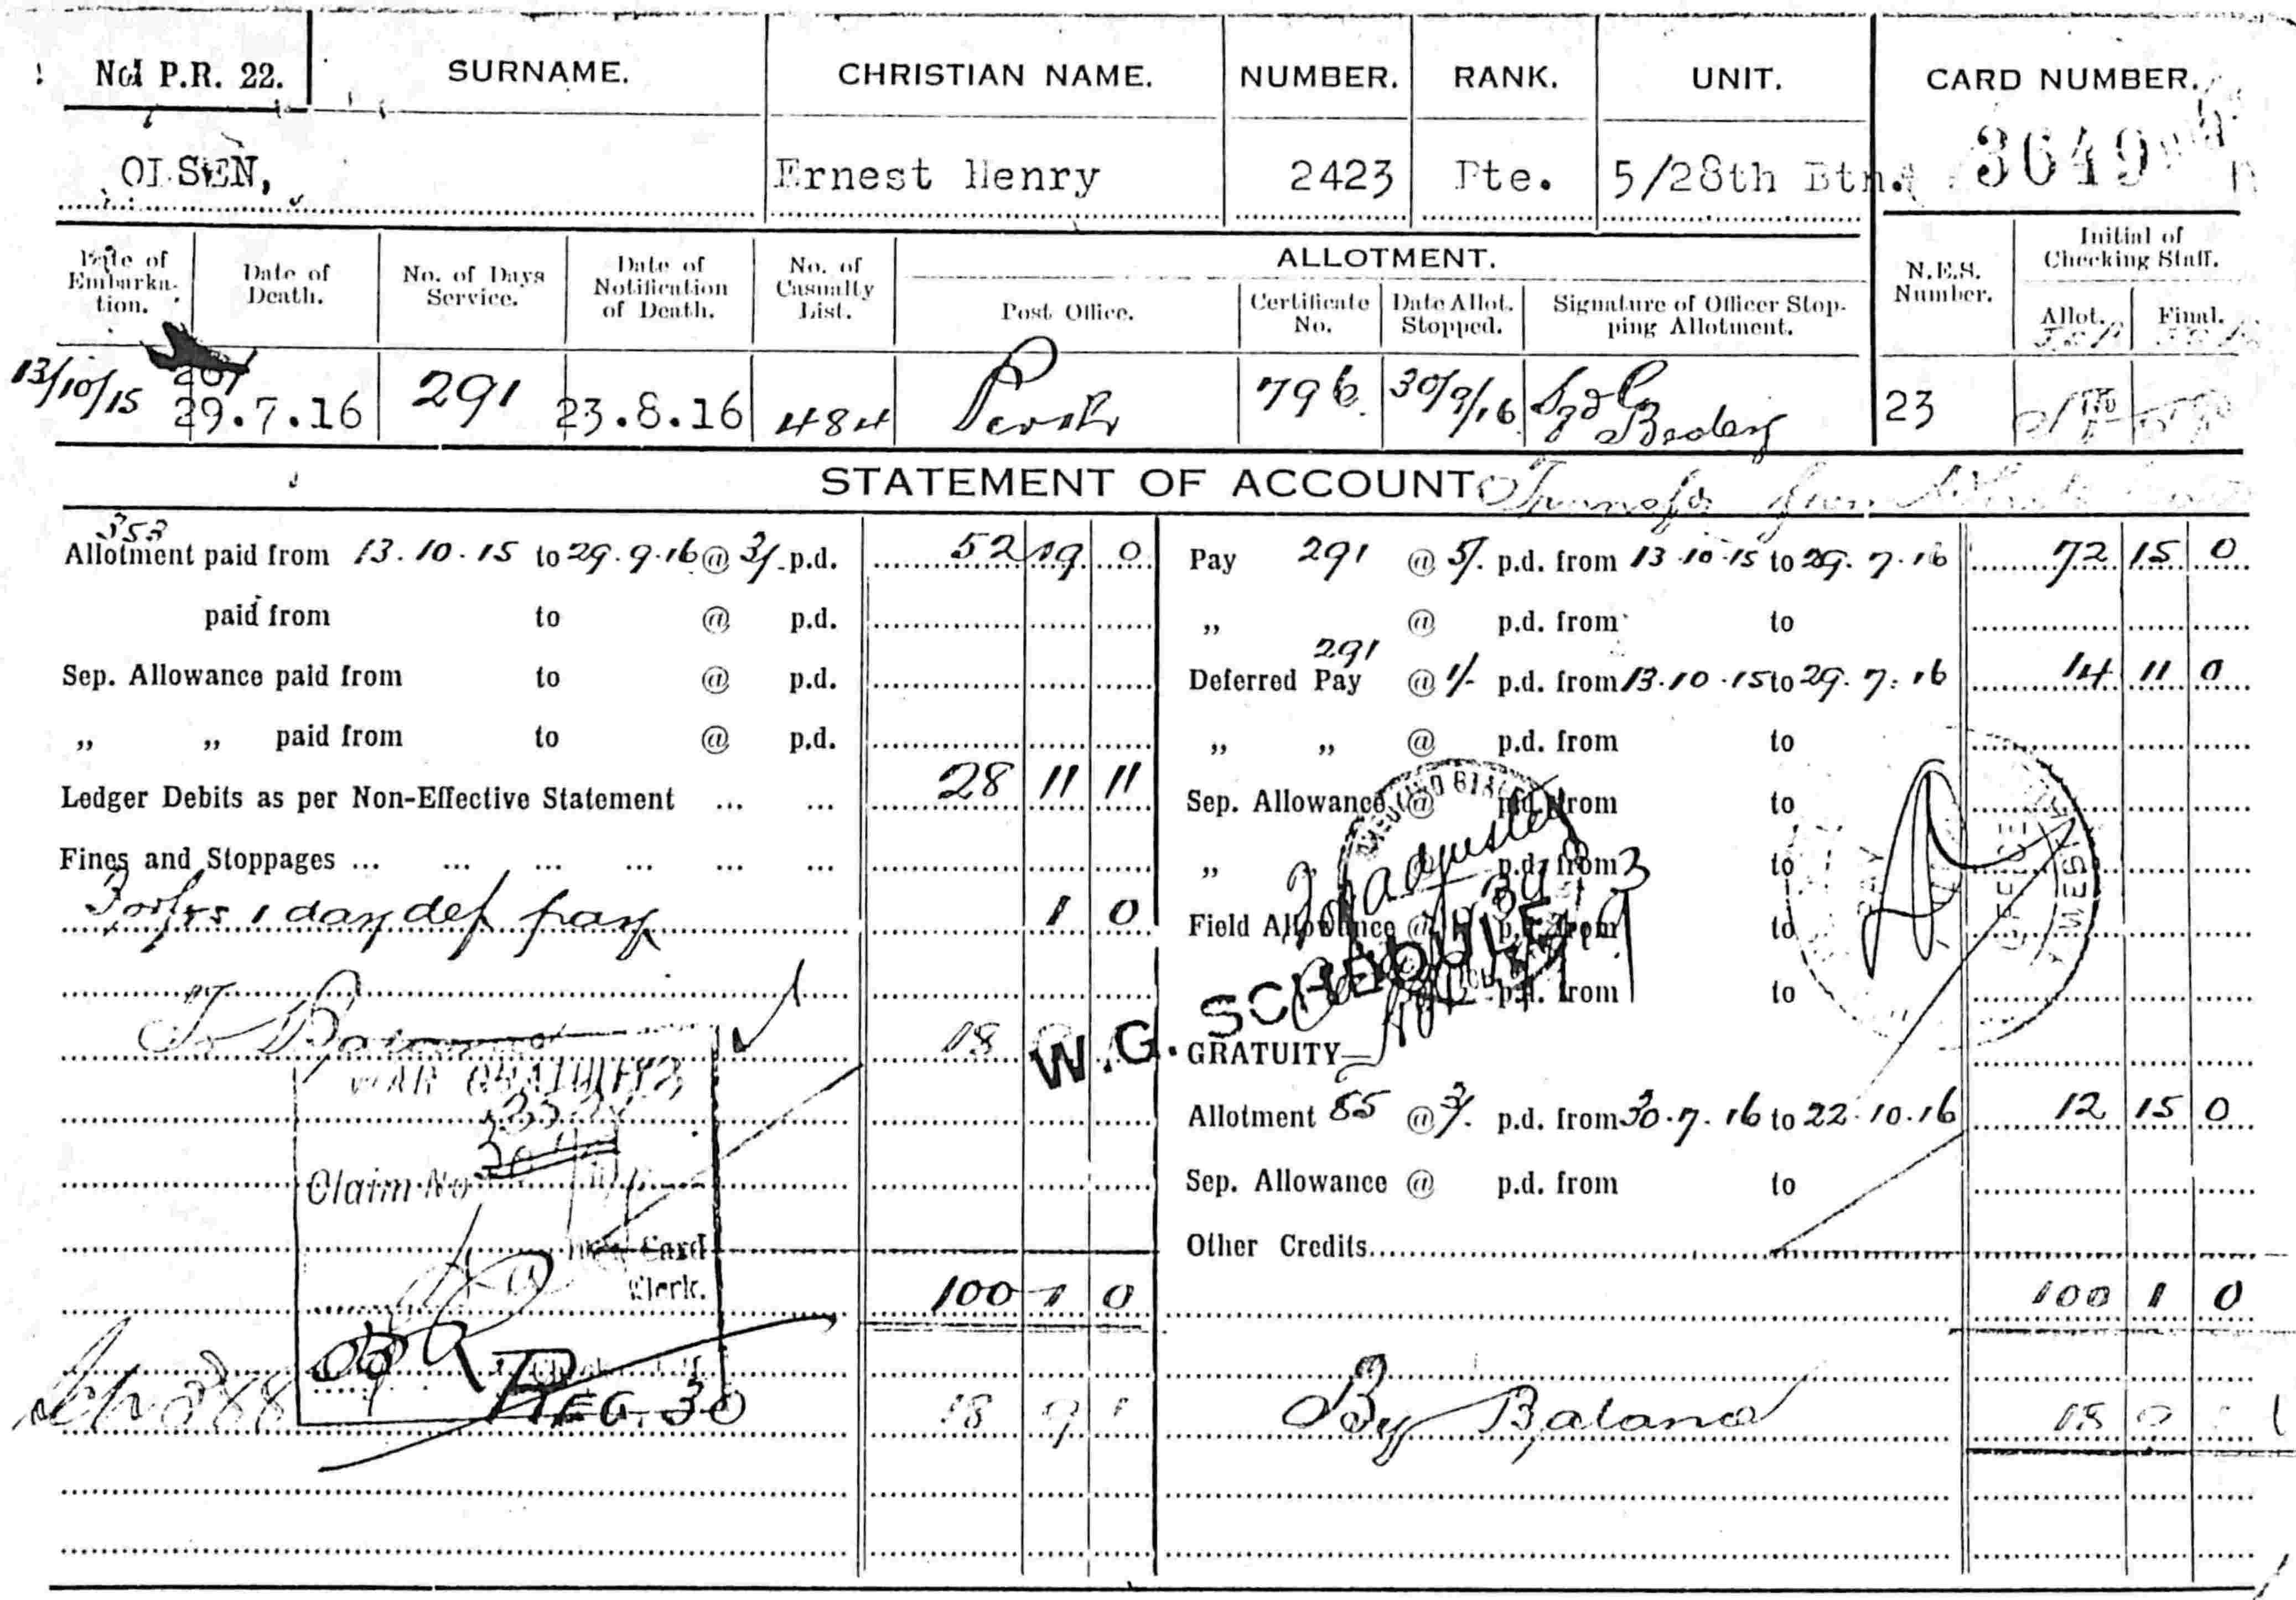 No. P.R. 22. SURNAME. CHRISTIAN NAME. NUMBER. RANK. UNIT. CARD NUMBER.
OLSEN, Ernest Henry 2423 Pte. 5/28th Btn. 3649
Date of Embarka- tion. Date of Death. No. of Days Service. Date of Notification of Death. No. of Casualty List. ALLOTMENT. N.E.S. Number. Initial of Checking Staff.
Post Office. Certificate No. Date Allot. Stopped. Signature of Officer Stop- ping Allotment. Allot. Final.
13/10/15 29.7.16 291 23.8.16 484 Perth 796 30/9/16 Sgd 23
STATEMENT OF ACCOUNT
353
Allotment paid from 13.10.15 to 29.9.16 @ 3/- p.d. 52 19 0
paid from to @ p.d.
Sep. Allowance paid from to @ p.d.
„ „ paid from to @ p.d.
Ledger Debits as per Non-Effective Statement ... ... 28 11 11
Fines and Stoppages ... ... ... ... ... ...
1 day def pay 1 0
To 18
WAR GRATUITY
Claim No
Card
Clerk.
100 1 0
REG. 30 18 9 1
Pay 291 @ 5/- p.d. from 13.10.15 to 29.7.16 72 15 0
„ @ p.d. from to
291
Deferred Pay @ 1/- p.d. from 13.10.15 to 29.7.16 14 11 0
„ „ @ p.d. from to
Sep. Allowance @ p.d. from to
„ @ p.d. from to
Field Allowance @ p.d. from to
@ p.d. from to
W.G. SCHEDULE
GRATUITY—
Allotment 85 @ 3/- p.d. from 30.7.16 to 22.10.16 12 15 0
Sep. Allowance @ p.d. from to
Other Credits
100 1 0
By Balance 18